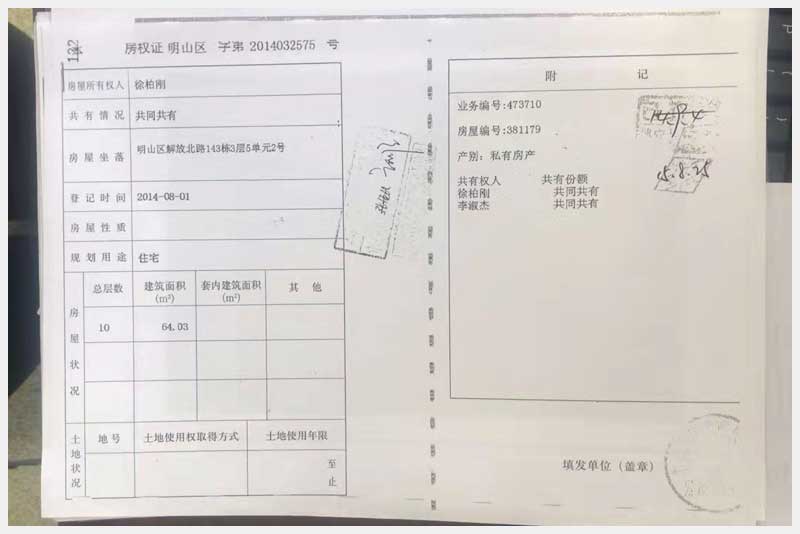 132
房权证 明山区 字第 2014032575 号
房屋所有权人 徐柏刚
共有情况 共同共有
房屋坐落 明山区解放北路143栋3层5单元2号
登记时间 2014-08-01
房屋性质
规划用途 住宅
房屋状况
总层数 建筑面积(m²) 套内建筑面积(m²) 其他
10 64.03
土地状况
地号 土地使用权取得方式 土地使用年限
至
止
附 记
业务编号:473710
房屋编号:381179
产别:私有房产
共有权人 共有份额
徐柏刚 共同共有
李淑杰 共同共有
15.8.25
填发单位(盖章)